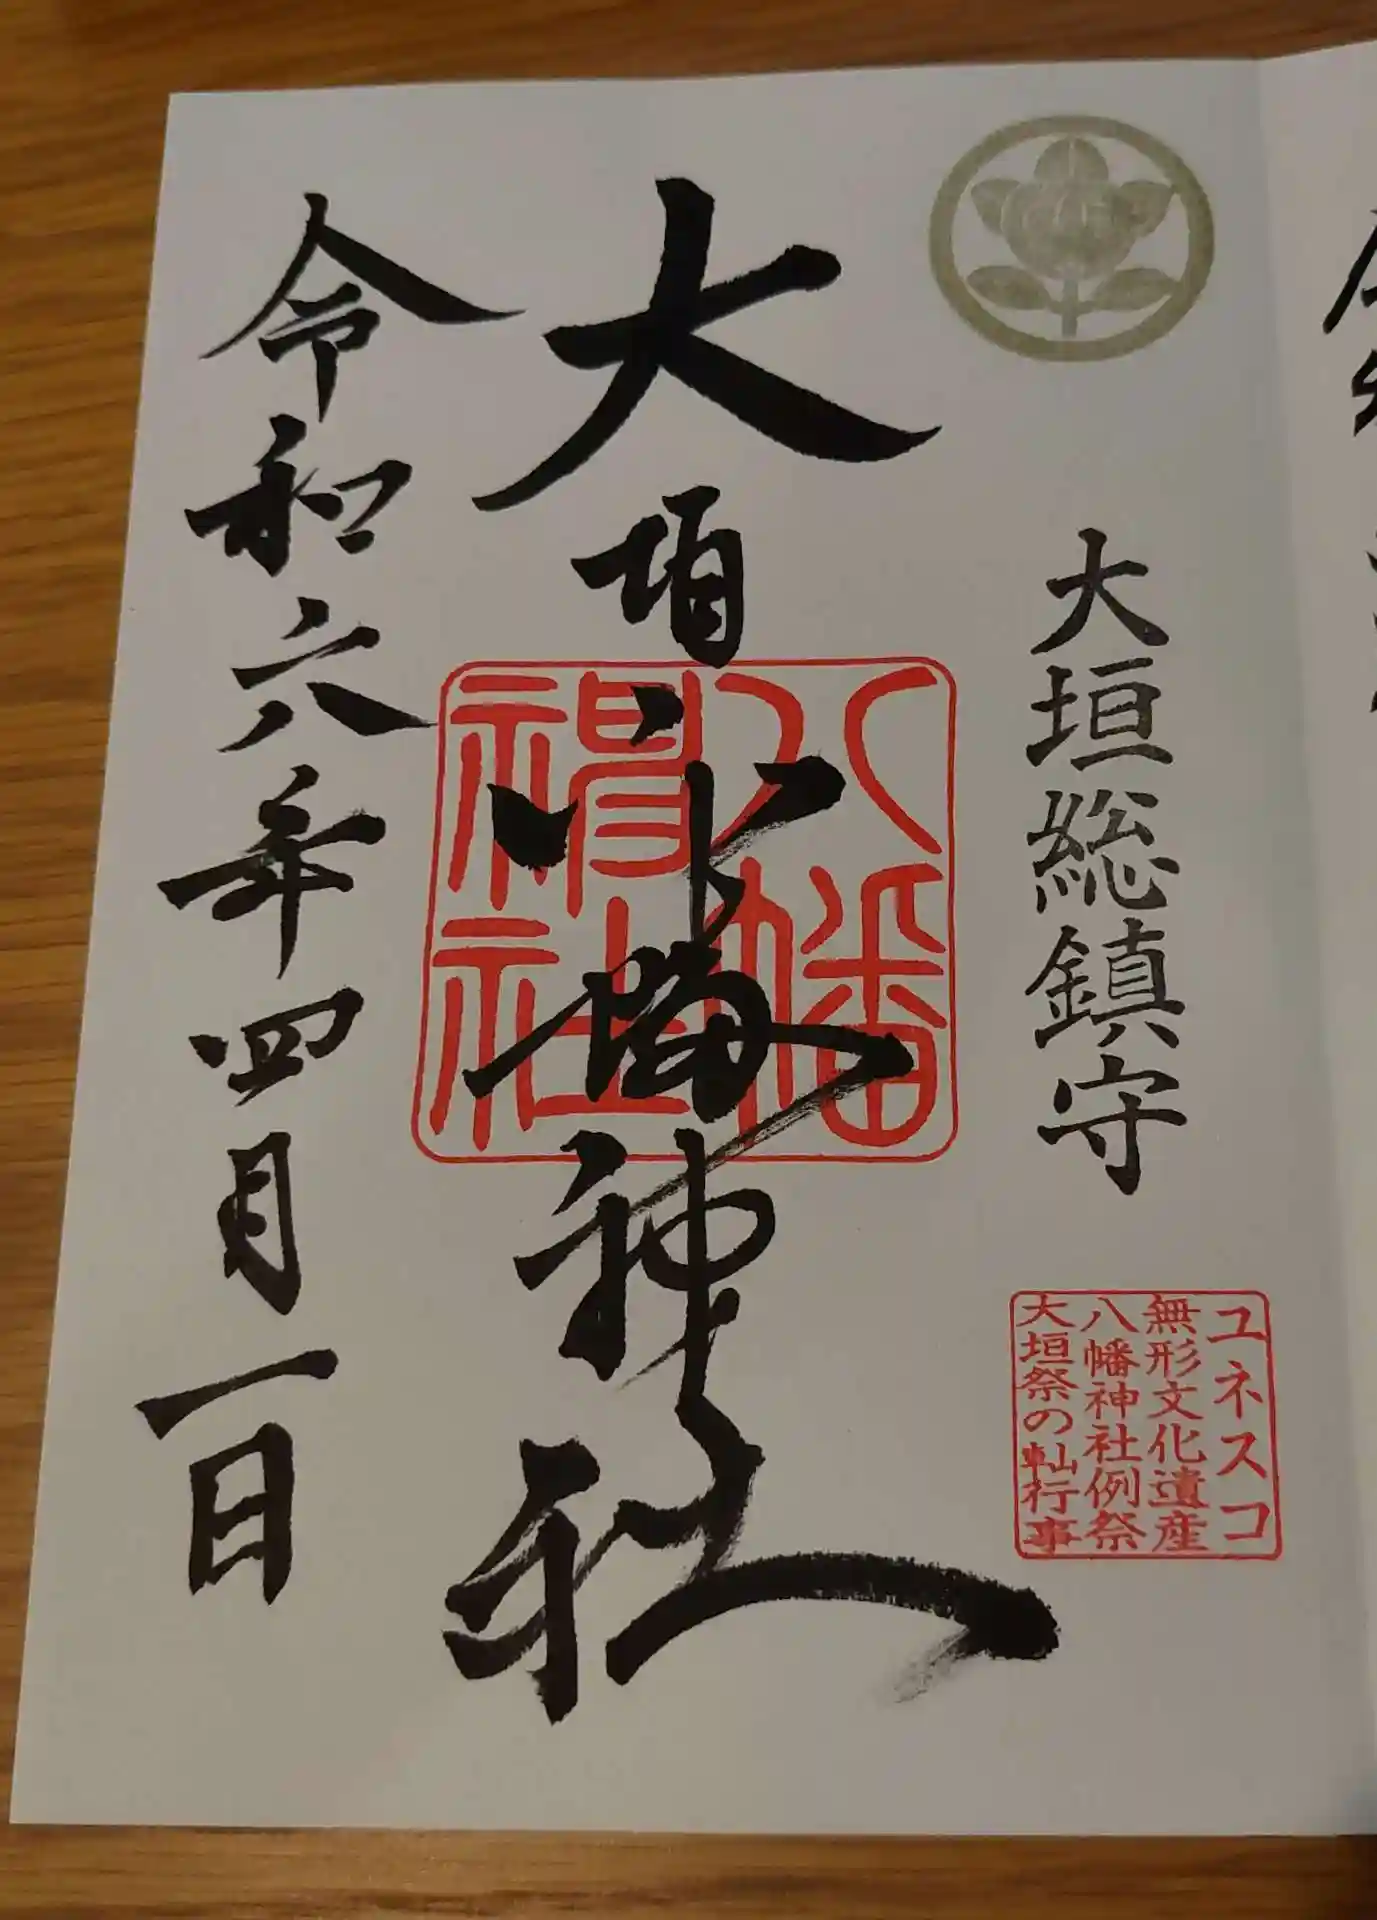 大垣総鎮守
ユネスコ
無形文化遺産
八幡神社例祭
大垣祭の軕行事
大垣八幡神社
八幡
神社
令和六年四月一日